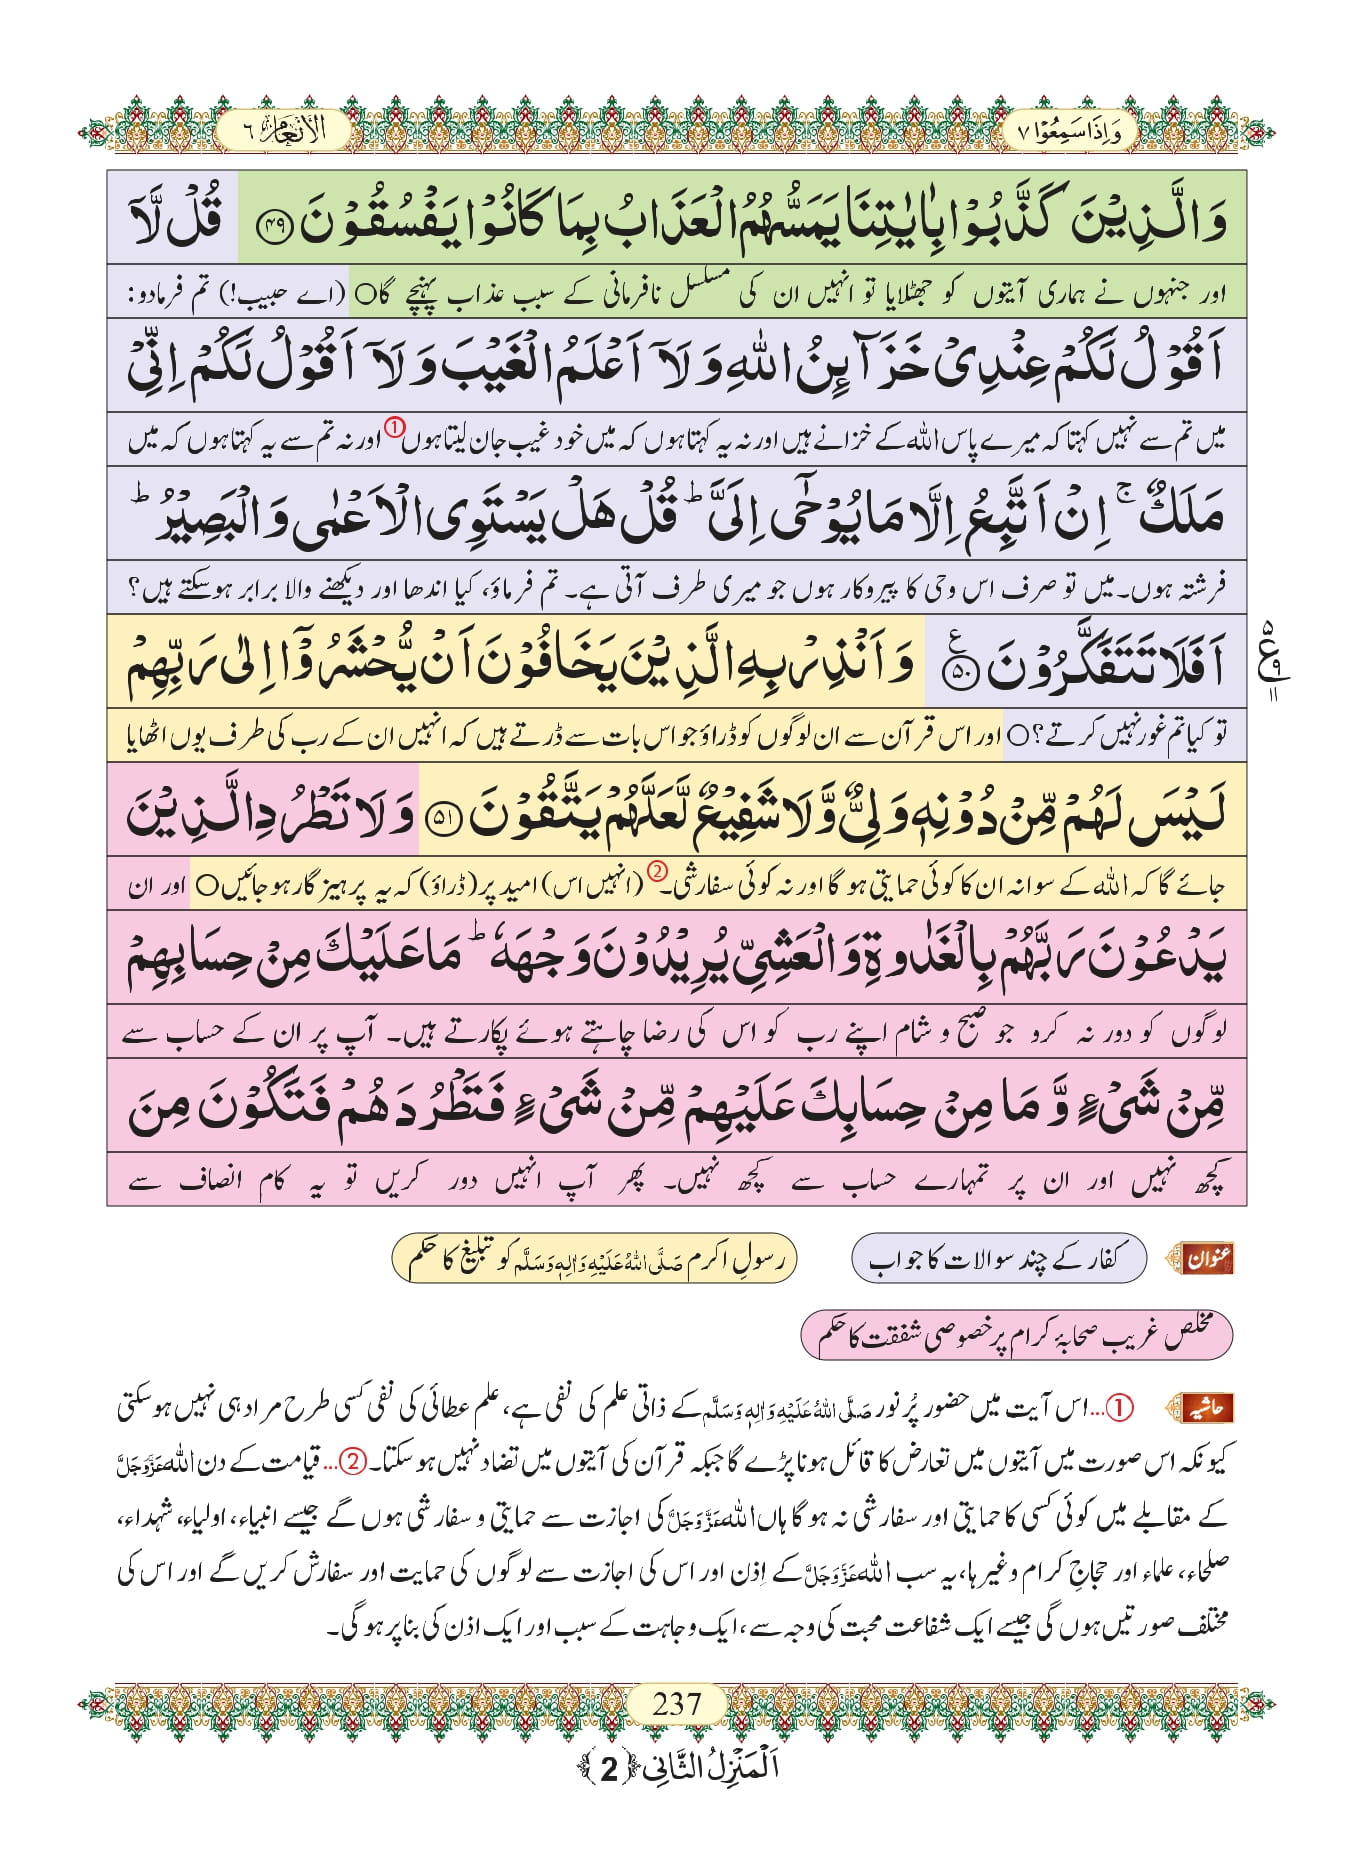 وَاِذَا سَمِعُوْا ۷
الْاَنْعَام ٦
وَالَّذِیْنَ كَذَّبُوْا بِاٰیٰتِنَا یَمَسُّهُمُ الْعَذَابُ بِمَا كَانُوْا یَفْسُقُوْنَ ﴿۴۹﴾ قُلْ لَّاۤ
اور جنہوں نے ہماری آیتوں کو جھٹلایا تو انہیں ان کی مسلسل نافرمانی کے سبب عذاب پہنچے گا○ (اے حبیب!) تم فرمادو:
اَقُوْلُ لَكُمْ عِنْدِیْ خَزَآىٕنُ اللّٰهِ وَ لَاۤ اَعْلَمُ الْغَیْبَ وَ لَاۤ اَقُوْلُ لَكُمْ اِنِّیْ
میں تم سے نہیں کہتا کہ میرے پاس اللہ کے خزانے ہیں اور نہ یہ کہتا ہوں کہ میں خود غیب جان لیتا ہوں① اور نہ تم سے یہ کہتا ہوں کہ میں
مَلَكٌۚ اِنْ اَتَّبِعُ اِلَّا مَا یُوْحٰۤى اِلَیَّؕ قُلْ هَلْ یَسْتَوِی الْاَعْمٰى وَ الْبَصِیْرُؕ
فرشتہ ہوں۔ میں تو صرف اس وحی کا پیروکار ہوں جو میری طرف آتی ہے۔ تم فرماؤ، کیا اندھا اور دیکھنے والا برابر ہوسکتے ہیں؟
اَفَلَا تَتَفَكَّرُوْنَ ﴿۵۰﴾ع وَ اَنْذِرْ بِهِ الَّذِیْنَ یَخَافُوْنَ اَنْ یُّحْشَرُوْۤا اِلٰى رَبِّهِمْ
۵
ع
۹
۱۱
تو کیا تم غور نہیں کرتے؟○ اور اس قرآن سے ان لوگوں کو ڈراؤ جو اس بات سے ڈرتے ہیں کہ انہیں ان کے رب کی طرف یوں اٹھایا
لَیْسَ لَهُمْ مِّنْ دُوْنِهٖ وَلِیٌّ وَّ لَا شَفِیْعٌ لَّعَلَّهُمْ یَتَّقُوْنَ ﴿۵۱﴾ وَ لَا تَطْرُدِ الَّذِیْنَ
جائے گا کہ اللہ کے سوا نہ ان کا کوئی حمایتی ہو گا اور نہ کوئی سفارشی۔② (انہیں اس) امید پر (ڈراؤ) کہ یہ پرہیز گار ہو جائیں○ اور ان
یَدْعُوْنَ رَبَّهُمْ بِالْغَدٰوةِ وَ الْعَشِیِّ یُرِیْدُوْنَ وَجْهَهٗؕ مَا عَلَیْكَ مِنْ حِسَابِهِمْ
لوگوں کو دور نہ کرو جو صبح و شام اپنے رب کو اس کی رضا چاہتے ہوئے پکارتے ہیں۔ آپ پر ان کے حساب سے
مِّنْ شَیْءٍ وَّ مَا مِنْ حِسَابِكَ عَلَیْهِمْ مِّنْ شَیْءٍ فَتَطْرُدَهُمْ فَتَكُوْنَ مِنَ
کچھ نہیں اور ان پر تمہارے حساب سے کچھ نہیں۔ پھر آپ انہیں دور کریں تو یہ کام انصاف سے
عنوان کفار کے چند سوالات کا جواب رسولِ اکرم صَلَّی اللہُ عَلَیْهِ وَاٰلِهٖ وَسَلَّم کو تبلیغ کا حکم
مخلص غریب صحابۂ کرام پر خصوصی شفقت کا حکم
حاشیہ ①…اس آیت میں حضور پُرنور صَلَّی اللہُ عَلَیْهِ وَاٰلِهٖ وَسَلَّم کے ذاتی علم کی نفی ہے، علم عطائی کی نفی کسی طرح مراد ہی نہیں ہوسکتی
کیونکہ اس صورت میں آیتوں میں تعارض کا قائل ہونا پڑے گا جبکہ قرآن کی آیتوں میں تضاد نہیں ہوسکتا۔②…قیامت کے دن اللہ عَزَّوَجَلَّ
کے مقابلے میں کوئی کسی کا حمایتی اور سفارشی نہ ہو گا ہاں اللہ عَزَّوَجَلَّ کی اجازت سے حمایتی و سفارشی ہوں گے جیسے انبیاء، اولیاء، شہداء،
صلحاء، علماء اور حجاجِ کرام وغیرہا، یہ سب اللہ عَزَّوَجَلَّ کے اِذن اور اس کی اجازت سے لوگوں کی حمایت اور سفارش کریں گے اور اس کی
مختلف صورتیں ہوں گی جیسے ایک شفاعت محبت کی وجہ سے، ایک وجاہت کے سبب اور ایک اذن کی بنا پر ہوگی۔
237
اَلْمَنْزِلُ الثَّانِی ﴿2﴾